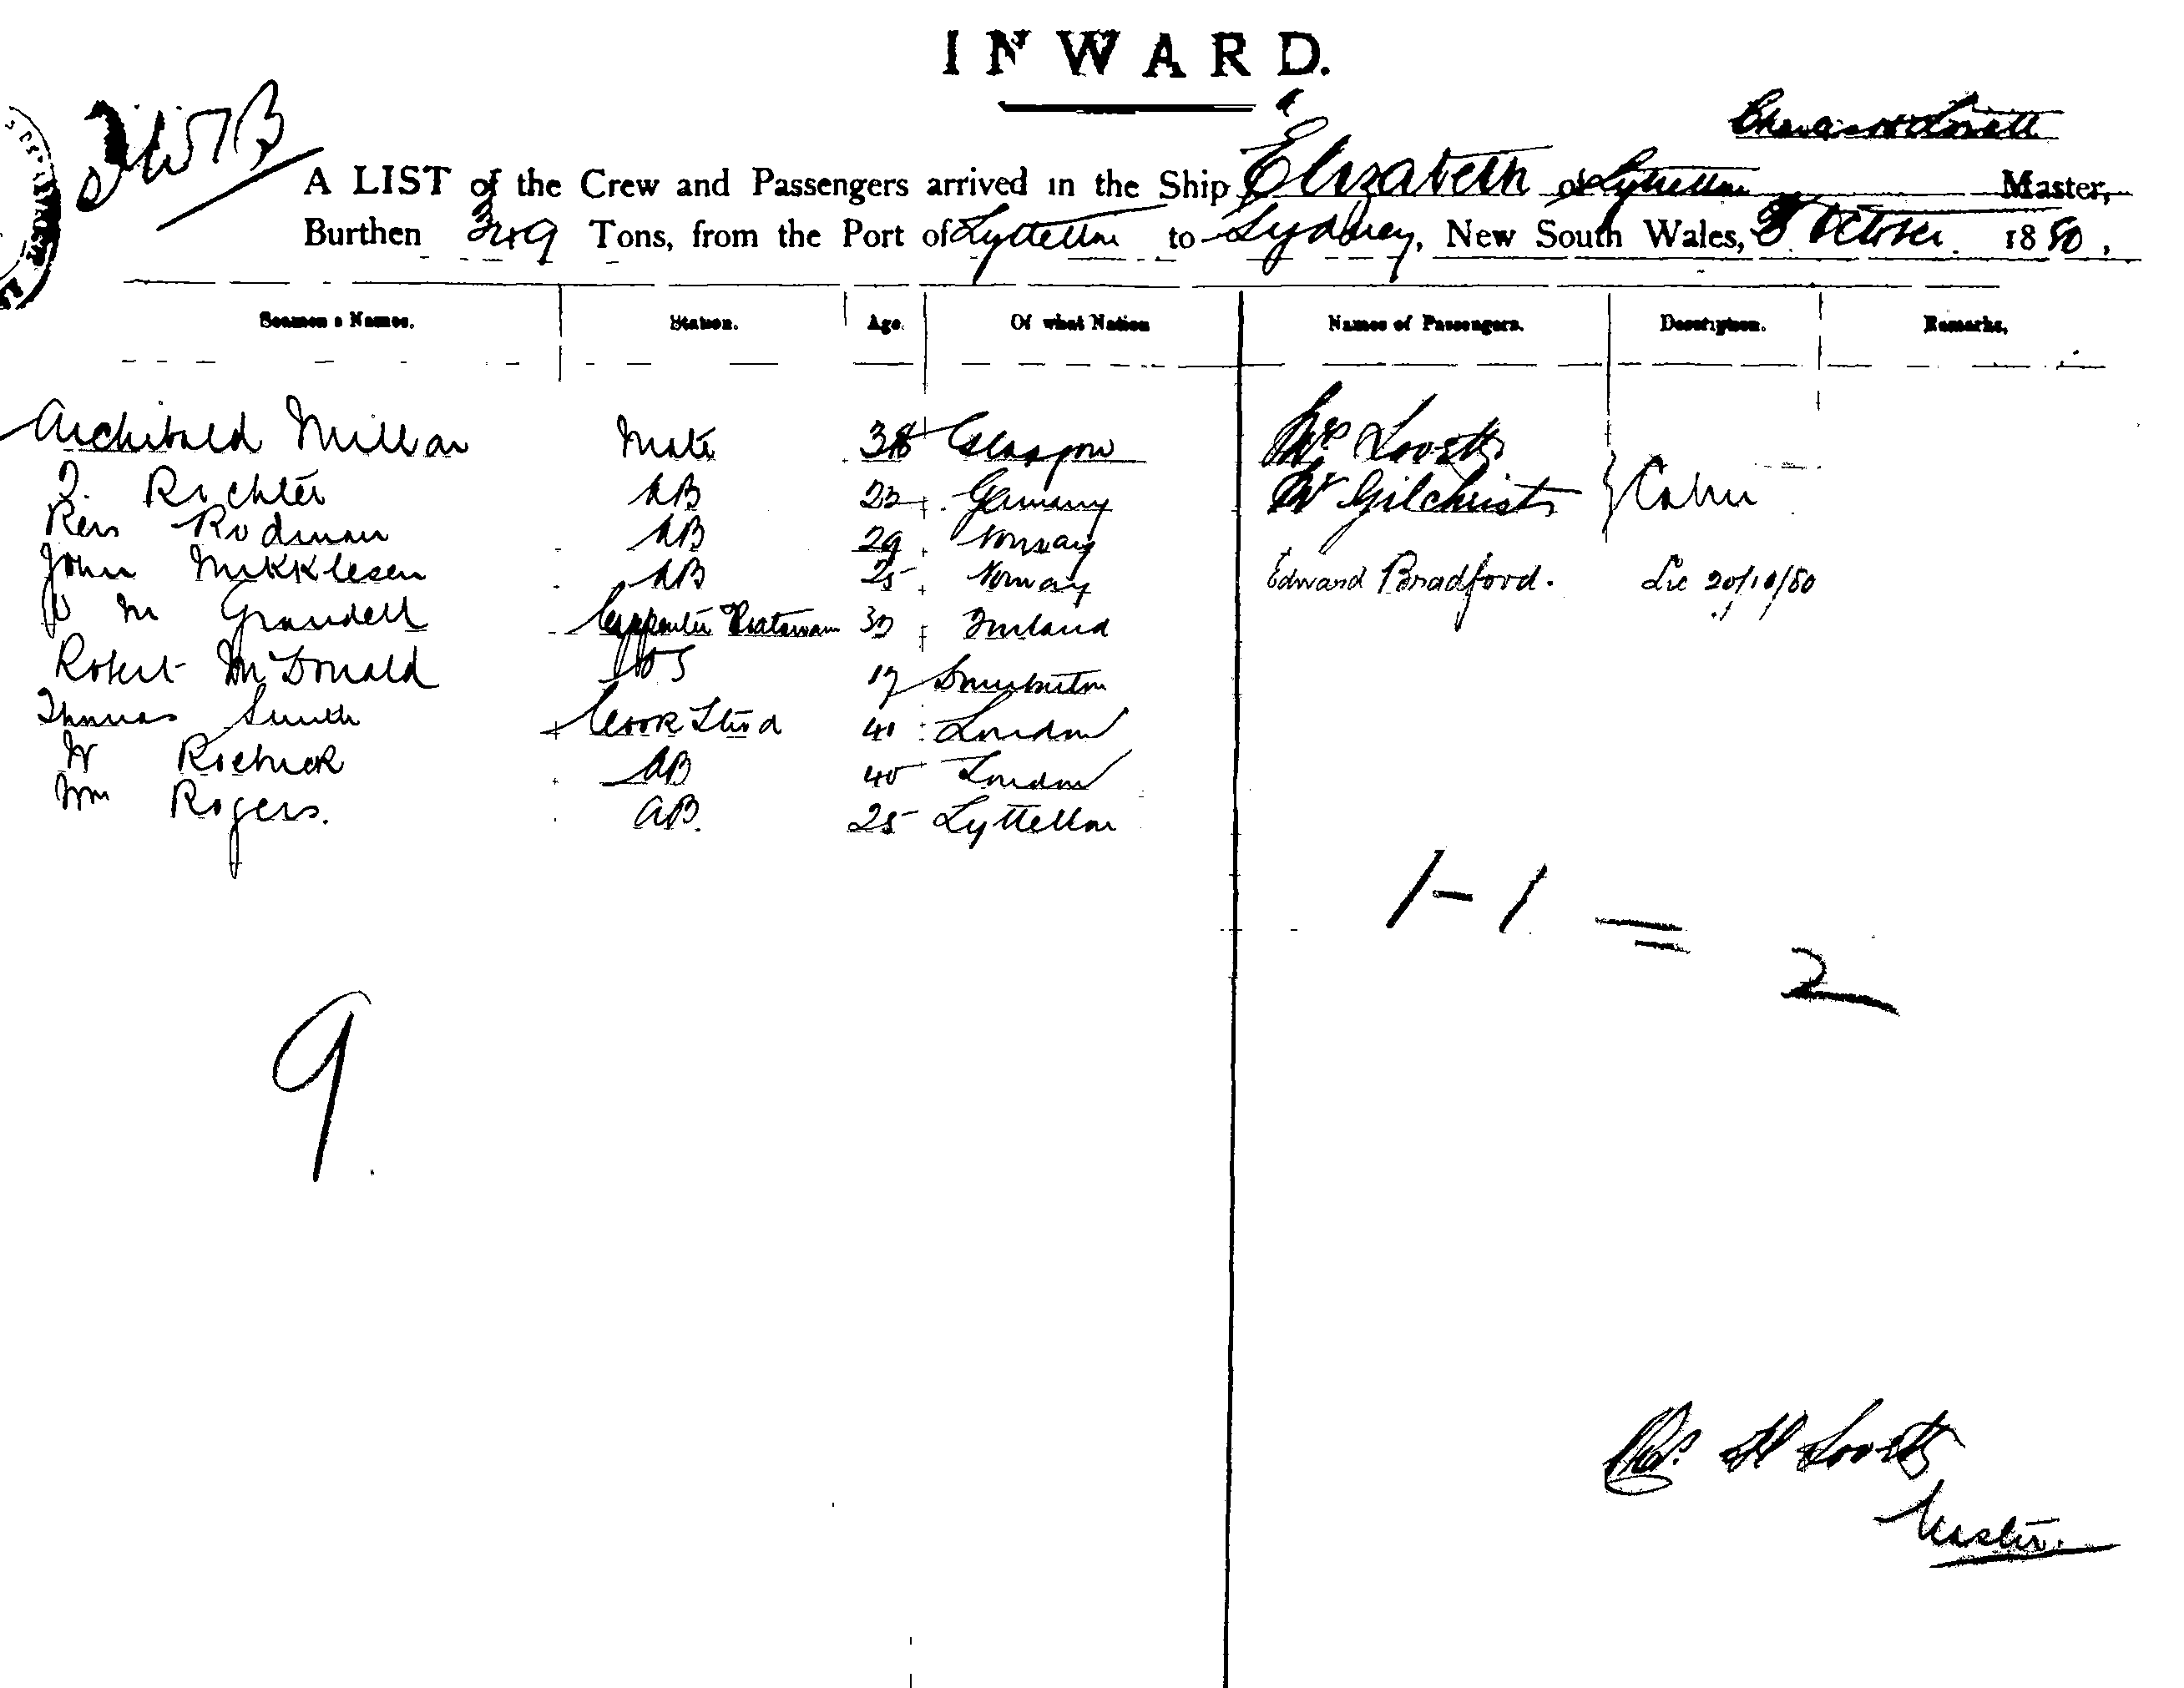 INWARD.
A LIST of the Crew and Passengers arrived in the Ship Elizabeth of Lyttelton Master,
Burthen 349 Tons, from the Port of Lyttelton to Sydney, New South Wales, October 1880,
Seamen's Names. Station. Age. Of what Nation Names of Passengers. Description. Remarks,
Archibald Millar Mate 38 Glasgow Lovett
Richter AB Germany Gilchrist Cabin
Rodman AB 29 Norway
John Mikklesen AB 25 Norway Edward Bradford. 20/10/80
M Grundell Carpenter Boatswain Finland
Robert McDonald OS 17 Dumbarton
Thomas Smith Cook Stwd 41 London
W Roebuck AB 40 London
Wm Rogers. AB. 25 Lyttelton
1 - 1 = 2
9
H Lovett
Master.